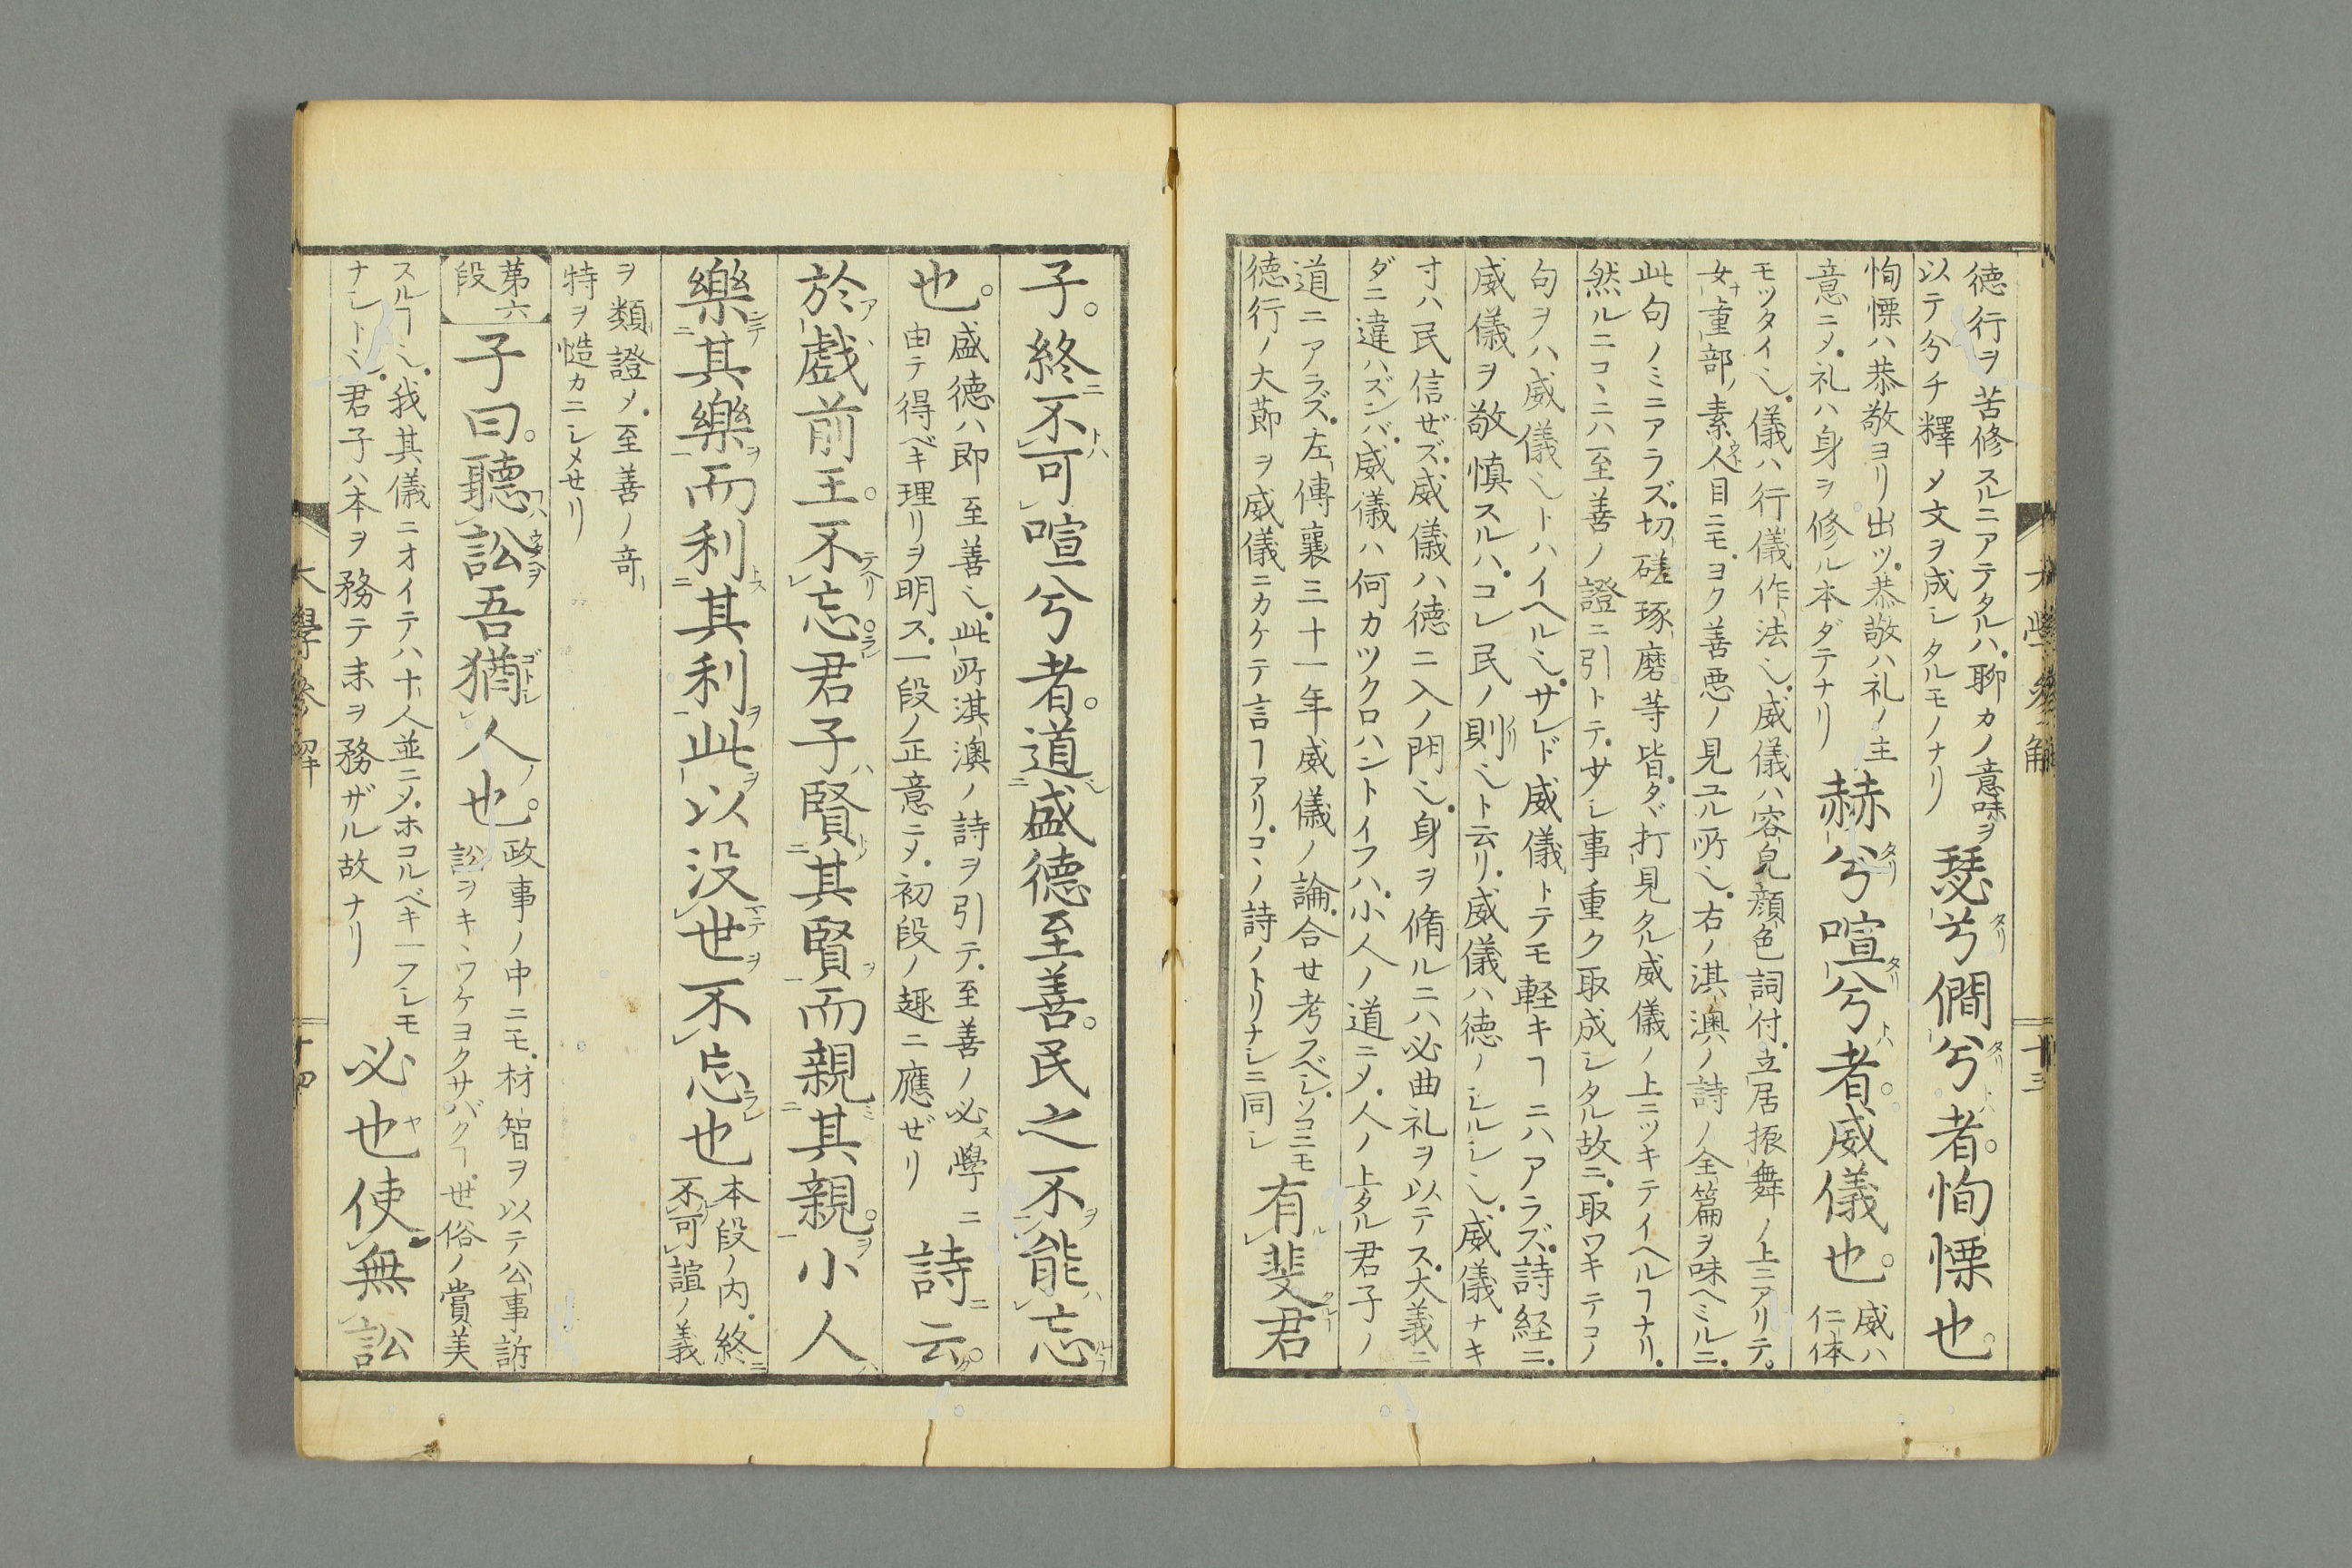 徳行ヲ苦修スルニアテタルハ聊カノ意味ヲ
以テ兮チ釋〆文ヲ成シタルモノナリ
瑟兮僩兮者恂慄也
恂慄ハ恭敬ヨリ出ツ恭敬ハ礼ノ主
意ニ〆礼ハ身ヲ修ル本ダテナリ
赫兮喧兮者威儀也
威ハ
仁体
モツタイ也儀ハ行儀作法也威儀ハ容皃顔色詞付立居振舞ノ上ニアリテ
女重部ノ素人目ニモヨク善悪ノ見ユル所也右ノ淇澳ノ詩ノ全篇ヲ味ヘミルニ
此句ノミニアラズ切磋琢磨等皆タヾ打見タル威儀ノ上ニツキテイヘルヿナリ
然ルニコヽニハ至善ノ證ニ引トテ少シ事重ク取成シタル故ニ取ワキテコノ
句ヲハ威儀也トハイヘル也サレド威儀トテモ軽キヿニハアラズ詩経ニ
威儀ヲ敬慎スルハコレ民ノ則也ト云リ威儀ハ徳ノシルシ也威儀ナキ
寸ハ民信ゼズ威儀ハ徳ニ入ノ門也身ヲ脩ルニハ必曲礼ヲ以テス大義ニ
ダニ違ハズンバ威儀ハ何カツクロハントイフハ小人ノ道ニ〆人ノ上タル君子ノ
道ニアラズ左傳襄三十一年威儀ノ論合せ考スベシソコニモ
徳行ノ大莭ヲ威儀ニカケテ言ヿアリコヽノ詩ノトリナシニ同シ
有斐君
大學參解
十三
子終不可喧兮者道盛德至善民之不能忘
也
盛徳ハ即至善也此所淇澳ノ詩ヲ引テ至善ノ必ス學ニ
由テ得ベキ理リヲ明ス一段ノ正意ニ〆初段ノ趣ニ應ぜリ
詩云
於戲前王不忘君子賢其賢而親其親小人
樂其樂而利其利此以没世不忘也
本段ノ内終ニ
不可諠ノ義
ヲ類證〆至善ノ竒
特ヲ慥カニシメせリ
第六
段
子曰聽訟吾猶人也
政事ノ中ニモ材智ヲ以テ公事訴
訟ヲキヽワケヨクサバクヿ世俗ノ賞美
スルヿ也我其儀ニオイテハ十人並ニ〆ホコルベキヿ一フシモ
ナシト也君子ハ本ヲ務テ末ヲ務ザル故ナリ
必也使無訟
大學參解
十四